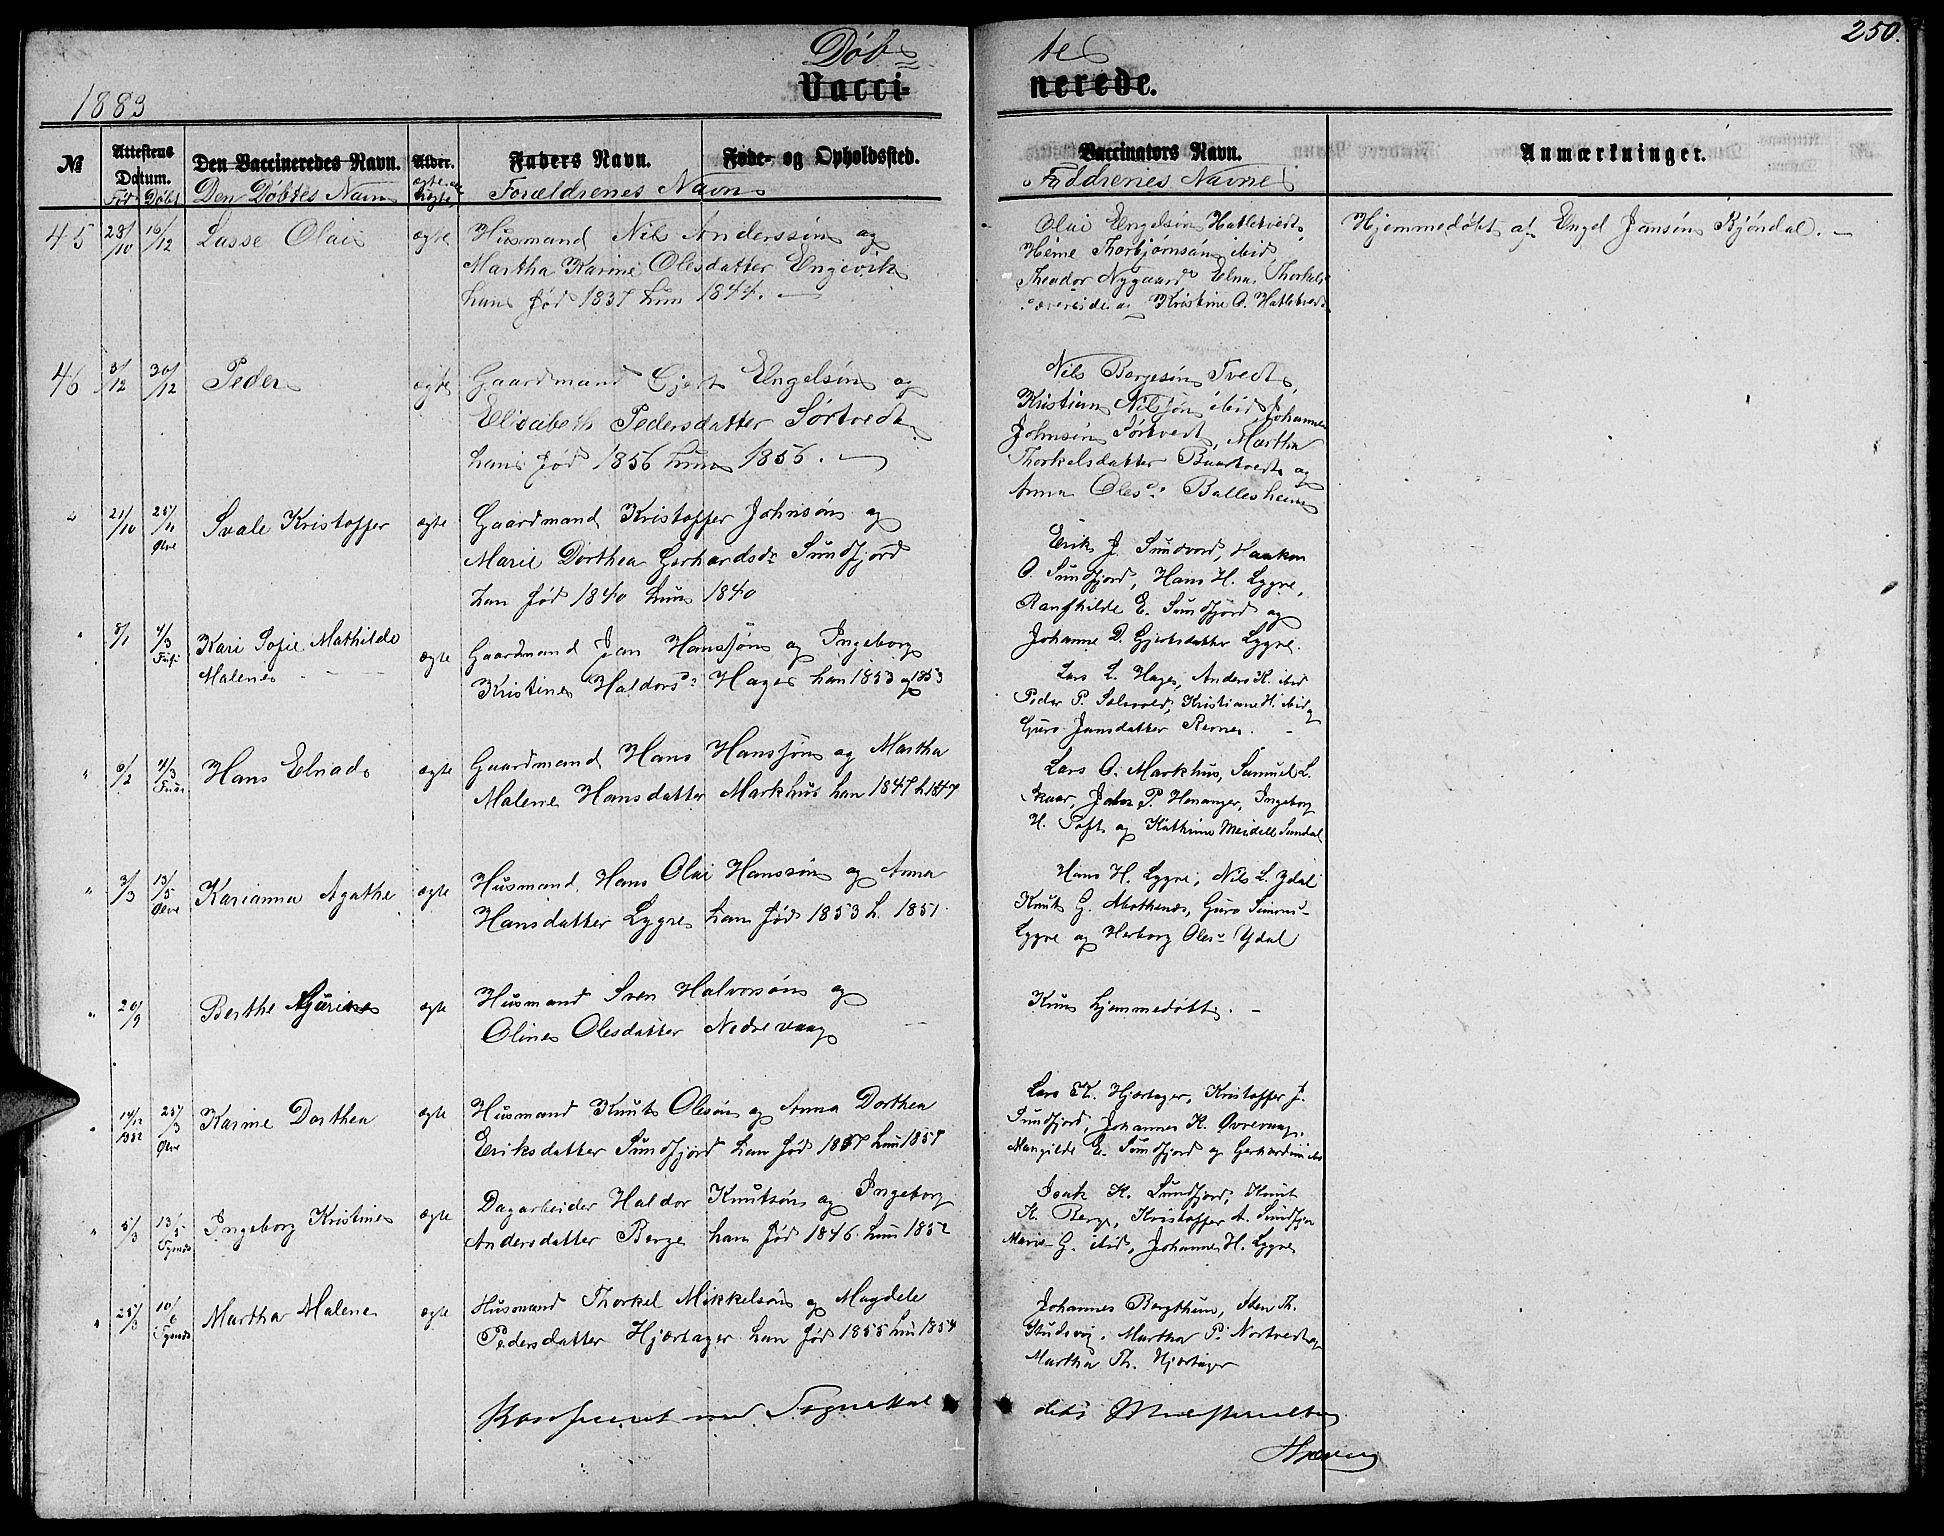 250.
1883
Døb=
te
Vacci-
nerede.
№
Attestens Datum.
Den Vaccineredes Navn.
Alder.
Faders Navn.
Føde- og Opholdssted.
Vaccinators Navn.
Anmærkninger.
Død Døbt
Den Døbtes Navn
Forældrenes Navn
Faddrenes Navne
45 28/10 16/12 Lasse Olai ægte Husmand Nils Anderssøn og
Martha Karine Olesdatter Engevik
han fød 1837 hun 1844. —
Olai Engelsøn Hatletvedt,
Heine Thorbjørnsøn ibid,
Theodor Nygaard, Elna Thorkels
og Kristine O. Hatletvedt
Hjemmedøbt af Engel Jansøn Bjøndal. —
46 3/12 30/12 Peder ægte Gaardmand Gjert Engelsøn og
Elisabeth Pedersdatter Sørtvedt
han fød 1856 hun 1856. —
Nils Børgesøn Tvedt,
Kristian Nilssøn ibid, Johannes
Johnsøn Sørtvedt, Martha
Thorkelsdatter Baartvedt og
Anna Olesd. Ballesheim
" 21/10 25/11 Ølve Svale Kristoffer ægte Gaardmand Kristoffer Johnsøn og
Marie Dorthea Gerhardsdr Sundfjord
han fød 1840 hun 1840
Erik J. Sundvord, Haakon
O. Sundfjord, Hans H. Lygre,
Ranghilde E. Sundfjord og
Johanne D. Gjertsdatter Lygre.
" 8/1 4/3 Kari Sofie Mathilde
Malene
ægte Gaardmand Jan Hanssøn og Ingeborg
Kristine Haldorsd. Hage han 1853 og 1853
Lars L. Hage, Anders K. ibid
Peder P. Sælsvold, Kristiane H. ibid og
Guro Jansdatter Revne. —
" 6/2 4/3 Hans Elnad ægte Gaardmand Hans Hanssøn og Martha
Malene Hansdatter Markhus han 1847 h. 1847
Lars O. Markhus, Samuel L.
Skaar, John P. Henanger, Ingeborg
H. Toft og Kathrine Meidell Sundal
" 3/3 13/5 Ølve Karianna Agathe ægte Husmand Hans Olai Hanssøn og Anna
Hansdatter Lygre han fød 1853 h. 1851.
Hans H. Lygre, Nils L. Ydal
Knut G. Mathenes, Guro Simons-
Lygre og Herborg Oles- Ydal
" 20/9 Berthe Gurine ægte Husmand Sven Halvorsøn og
Oline Olesdatter Nedrevaag —
Kun hjemmedøbt. —
" 14/12 1882 25/3 Ølve Karine Dorthea ægte Husmand Knut Olesøn og Anna Dorthea
Eriksdatter Sundfjord han fød 1857 hun 1857
Lars K. Hjærtager, Kristoffer J.
Sundfjord, Johannes K. Øvrevaag,
E. Sundfjord og Gerhardine ibid
" 5/3 13/5 Ingeborg Kristine ægte Dagarbeider Haldor Knutsøn og Ingeborg
Andersdatter Berge han fød 1846 hun 1852
Isak K. Sundfjord, Knut
K. Berge, Kristoffer A. Sundfjor
Marie G. ibid, Johanne H. Lygre
" 25/3 10/6 Martha Malene ægte Husmand Thorkel Mikkelsøn og Magdele
Pedersdatter Hjærtager han fød 1855 hun 1854
Johannes Bergthun, Iden Th.
Studsvig, Martha P. Nortvedt og
Martha Th. Hjærtager
Konfereret med Sognekal
dets Ministerialbog